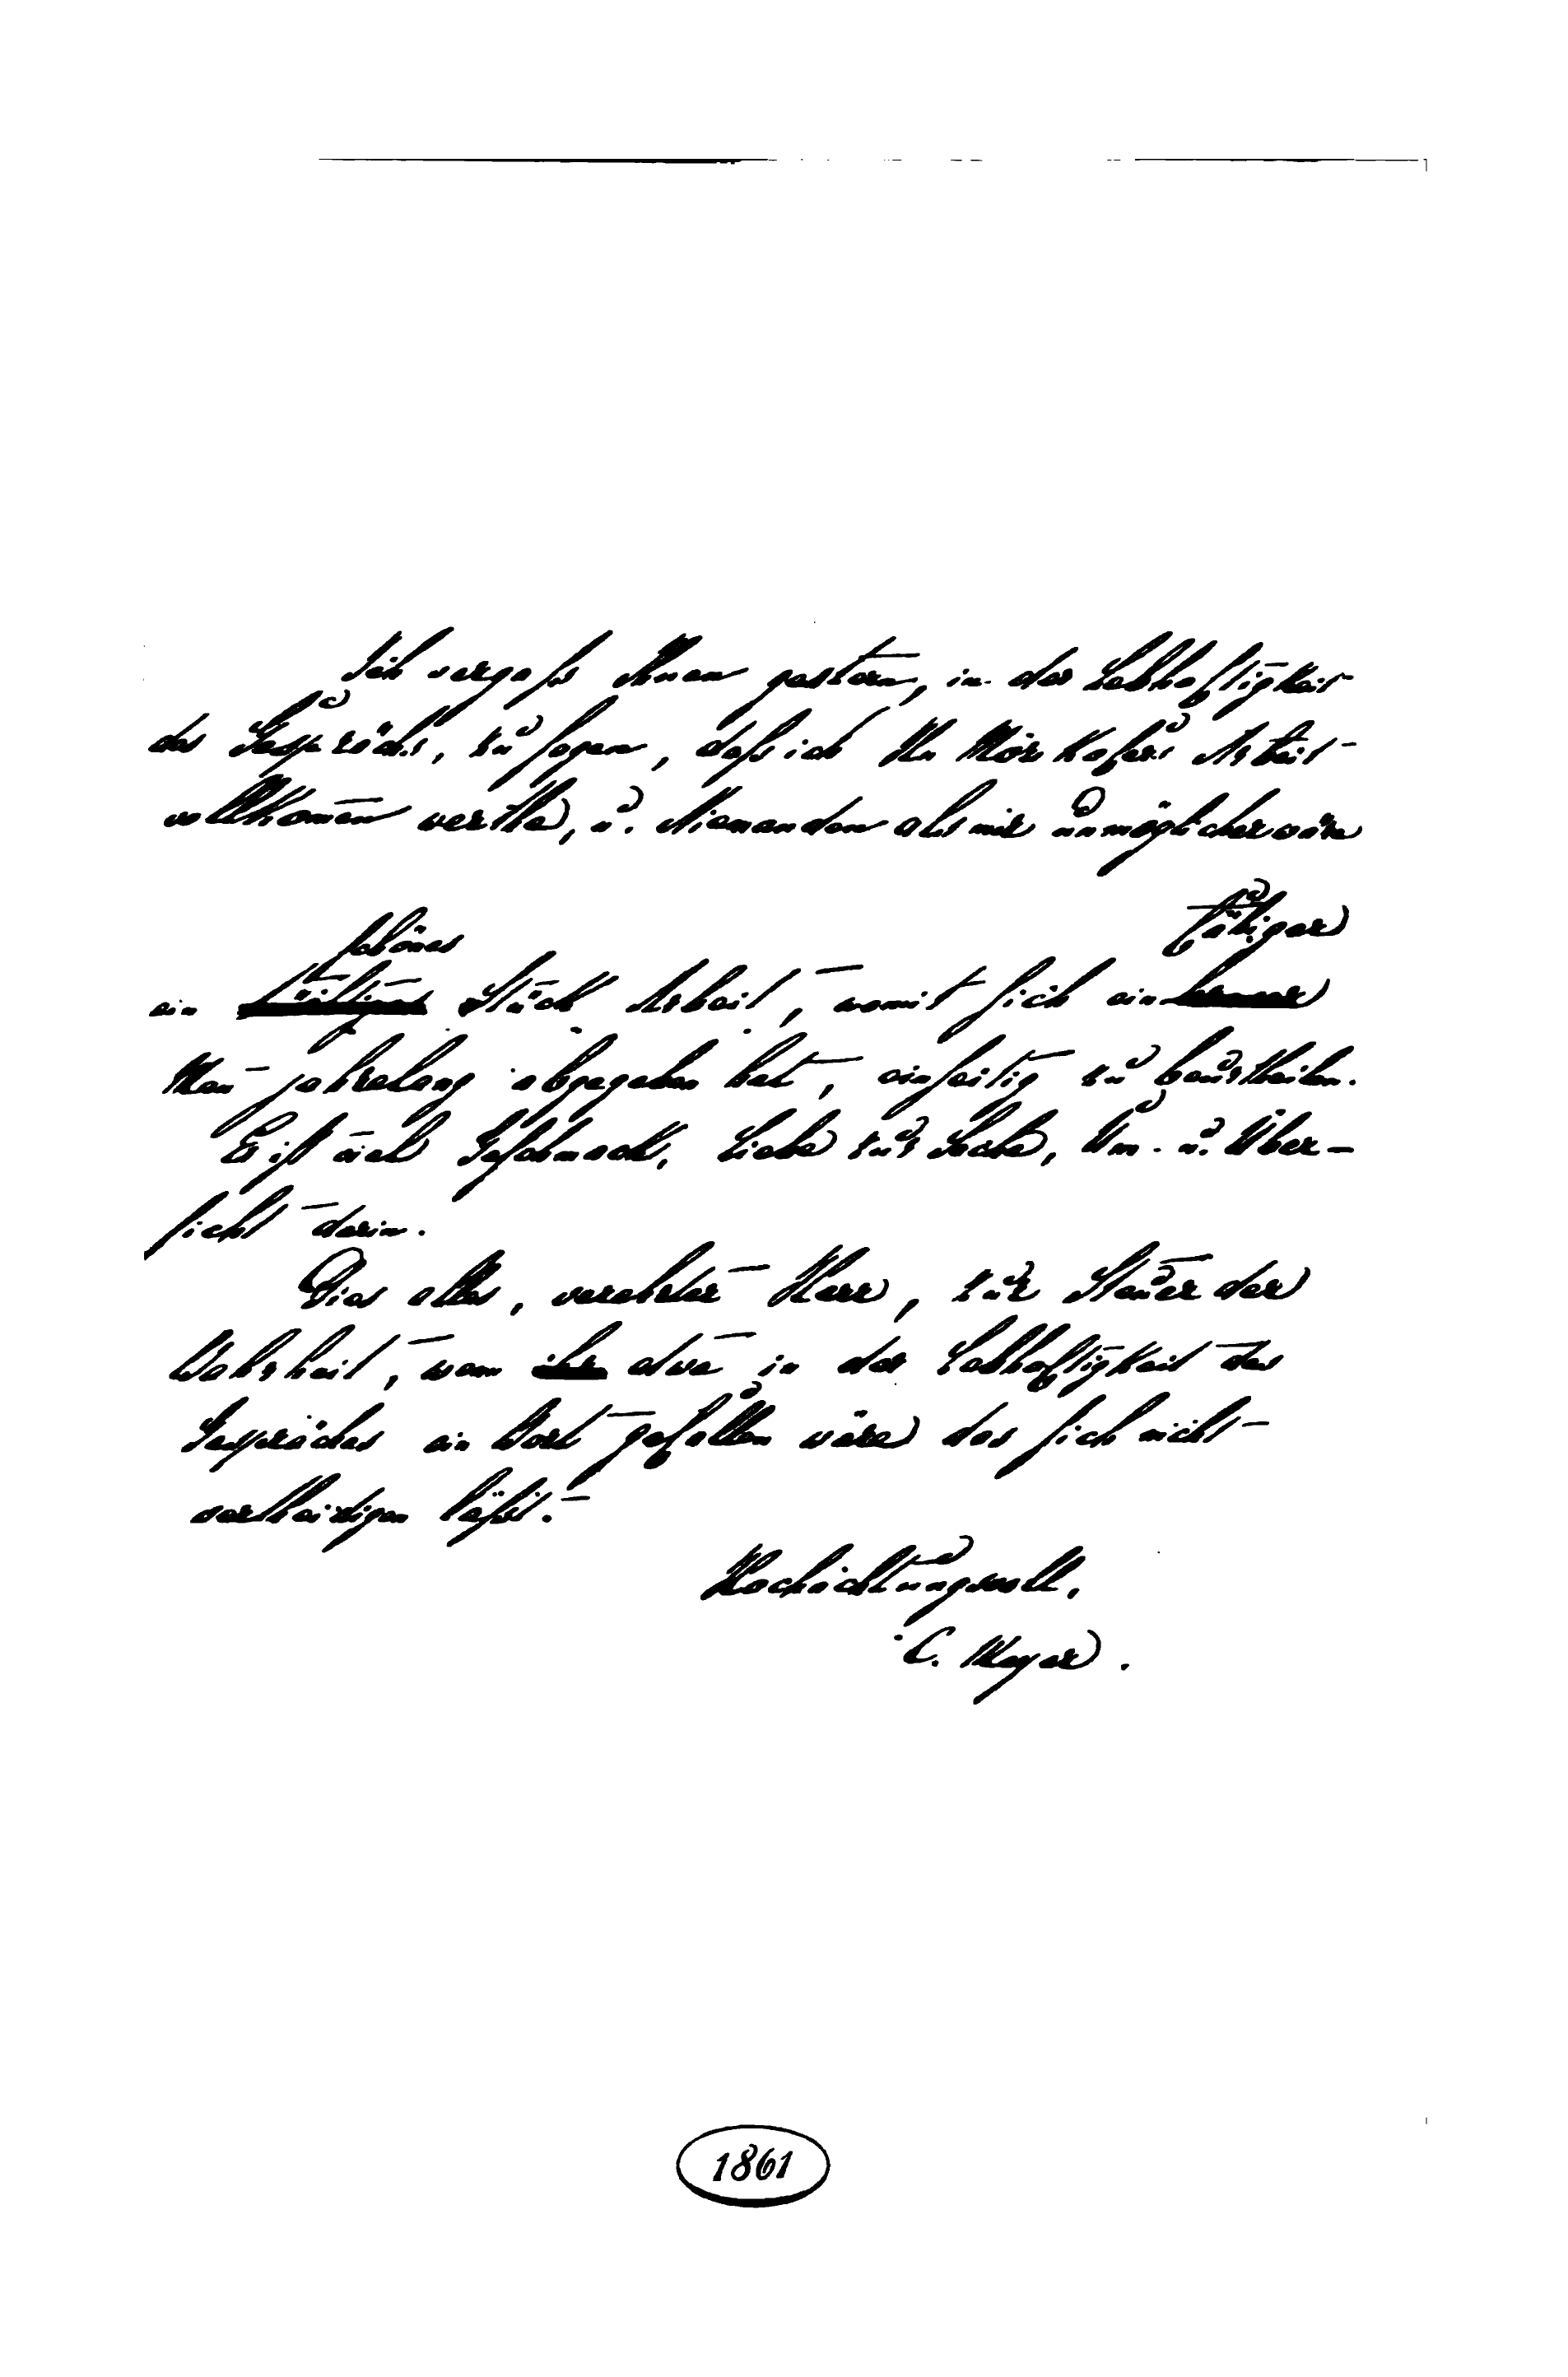 Ich vergaß Ihnen gestern, in der Lebhaftigkeit
des Gesprächs, zu sagen, daß ich Hn Mörikofers Arbeit
vollkom̄en werthe, u. Niemandem als mir unmöglicher wäre
schönes tüchtiger
ein Stück Arbeit, womit sich ein
Man̄ jahrelang abgegeben hat, einseitig zu beurtheilen.
Es ist viel Geschmack, Liebe zur Sache, Um- u. Über-
sicht darin.
Dies alles, verehrter Herr, zur Steuer der
Wahrheit, wenn etwa in der Lebhaftigkeit des
Gespräches ein Wort gefallen wäre das sich nicht
vertheidigen läßt.
Hochachtungsvoll.
C. Meyer.
1861